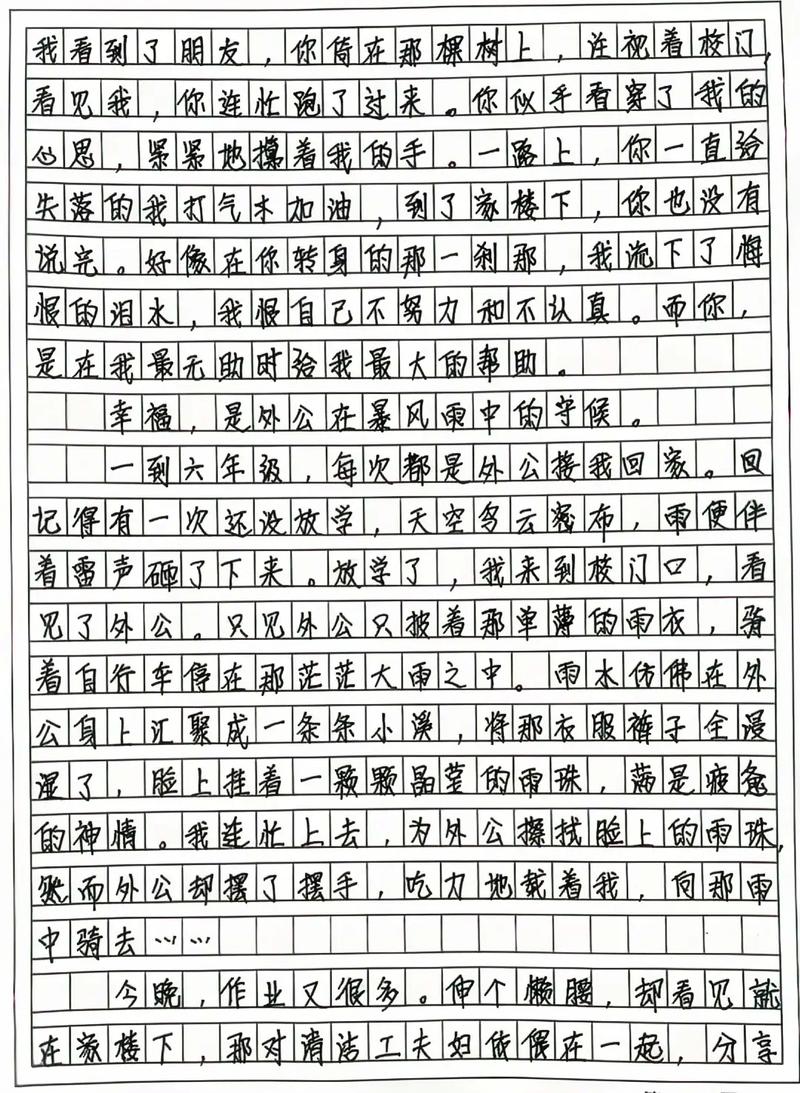 我看到了朋友，你倚在那棵树上，注视着校门，
看见我，你连忙跑了过来。你似乎看穿了我的
心思，紧紧地攥着我的手。一路上，你一直给
失落的我打气术加油，到了家楼下，你也没有
说完。好像在你转身的那一刹那，我流下了悔
恨的泪水，我恨自己不努力和不认真。而你，
是在我最无助时给我最大的帮助。
幸福，是外公在暴风雨中的守候。
一到六年级，每次都是外公接我回家。回
记得有一次还没放学，天空乌云密布，雨便伴
着雷声砸了下来。放学了，我来到校门口，看
见了外公。只见外公只披着那单薄的雨衣，骑
着自行车停在那茫茫大雨之中。雨水仿佛在外
公身上汇聚成一条条小溪，将那衣服裤子全浸
湿了，脸上挂着一颗颗晶莹的雨珠，满是疲惫
的神情。我连忙上去，为外公擦拭脸上的雨珠，
然而外公却摆了摆手，吃力地载着我，向那雨
中骑去……
今晚，作业又很多。伸个懒腰，却看见就
在家楼下，那对清洁工夫妇依偎在一起，分享